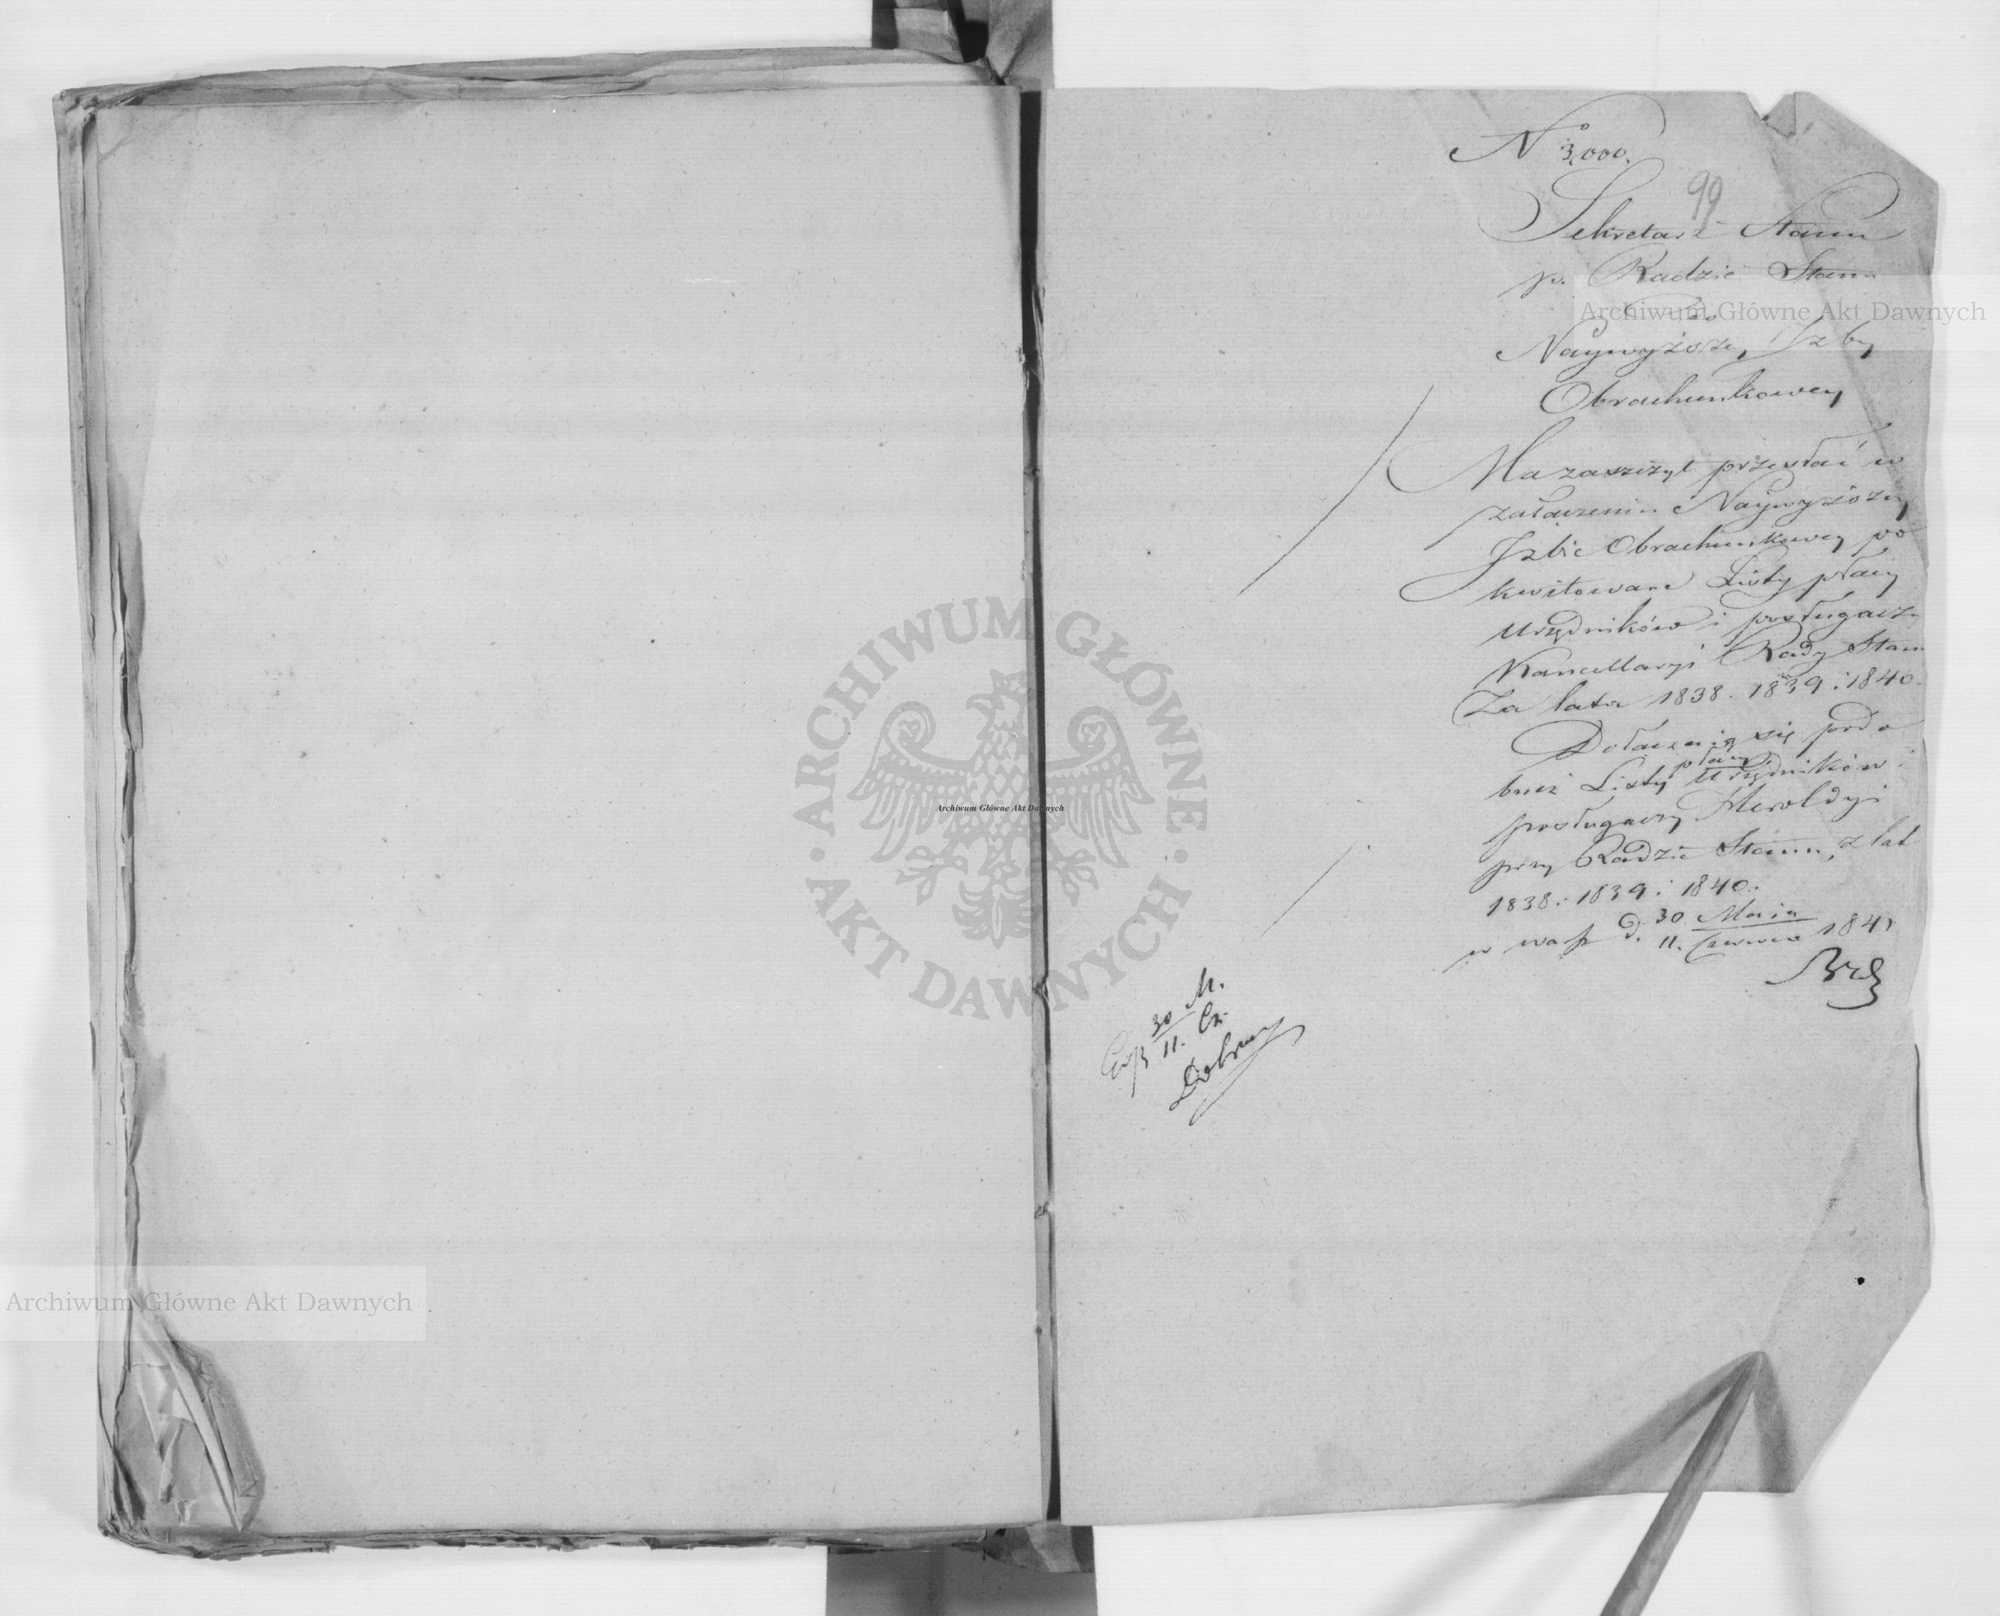 No 3,000.
99
Sekretarz Stanu
p. Radzie Stanu
Do
Naywyższey Izby
Obrachunkowey
Ma zaszczyt przesłać w
załączeniu Naywyższey
Izbie Obrachunkowey po
kwitowane Listy płacy
Urzędników i posługaczy
Kancellaryi Rady Stanu
Za lata 1838. 1839 i 1840.
Dołączaią się podo
bneż Listy płacy Urzędników i
posługaczy Heroldyi
przy Radzie Stanu, z lat
1838. 1839 i 1840.
w Warsz d. 30 Maia / 11. Czerwca 1841
30 M.
11. Cz.
Dobrucy
Archiwum Główne Akt Dawnych
Archiwum Główne Akt Dawnych
Archiwum Główne Akt Dawnych
ARCHIWUM GŁÓWNE · AKT DAWNYCH ·